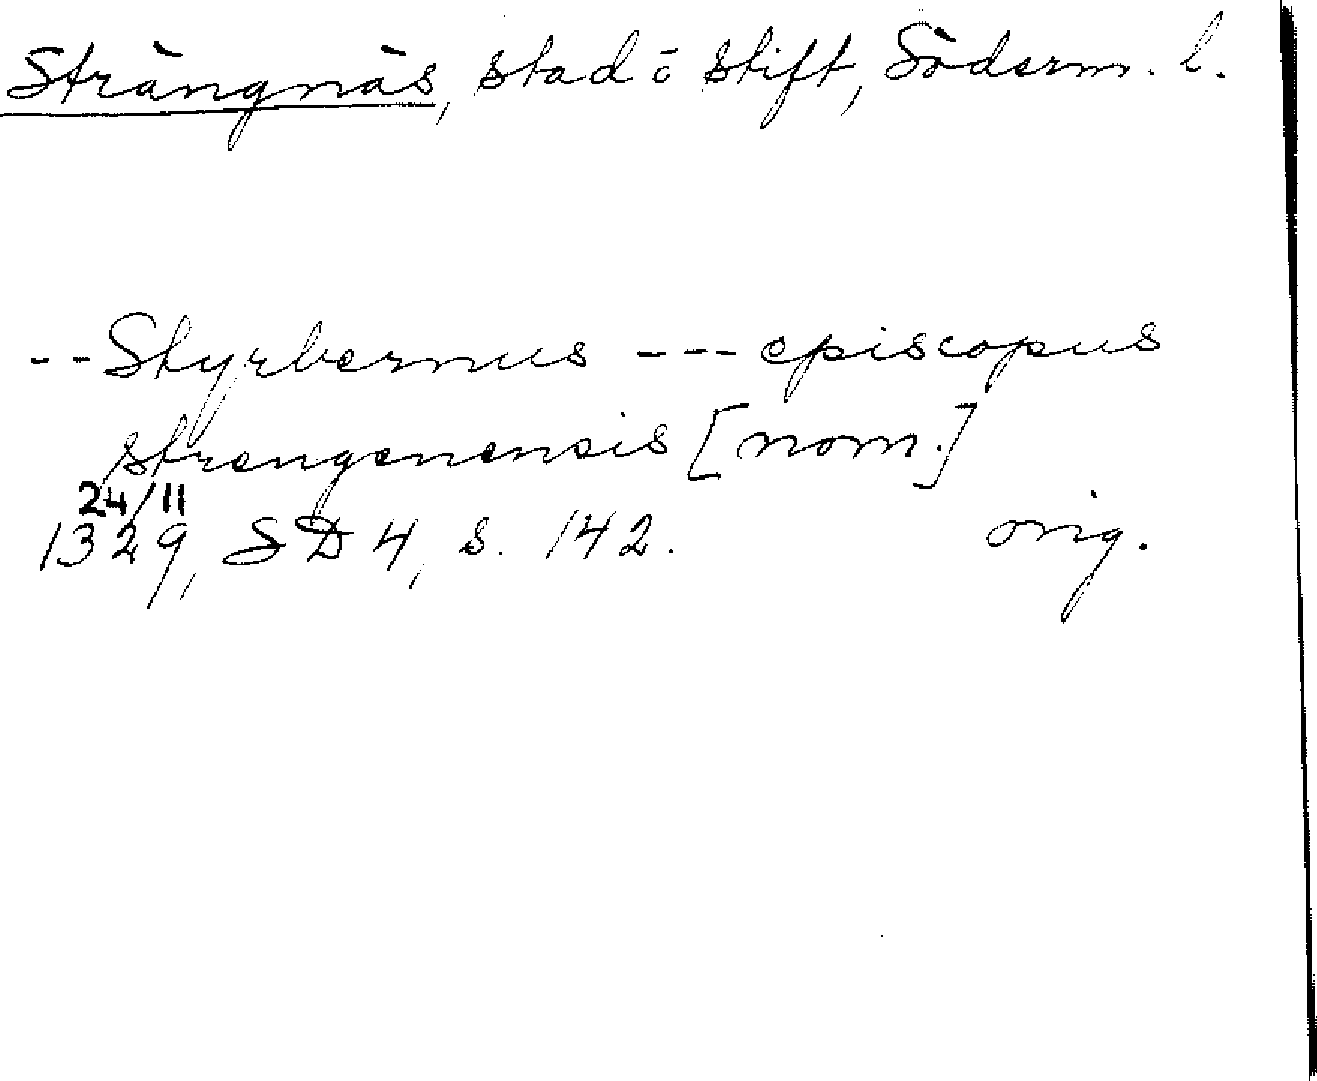 Strängnäs, stad o stift, Söderm. l.
--Styrbernus --- episcopus
strengenensis [nom.]
24/11
1329, SD 4, s. 142. orig.